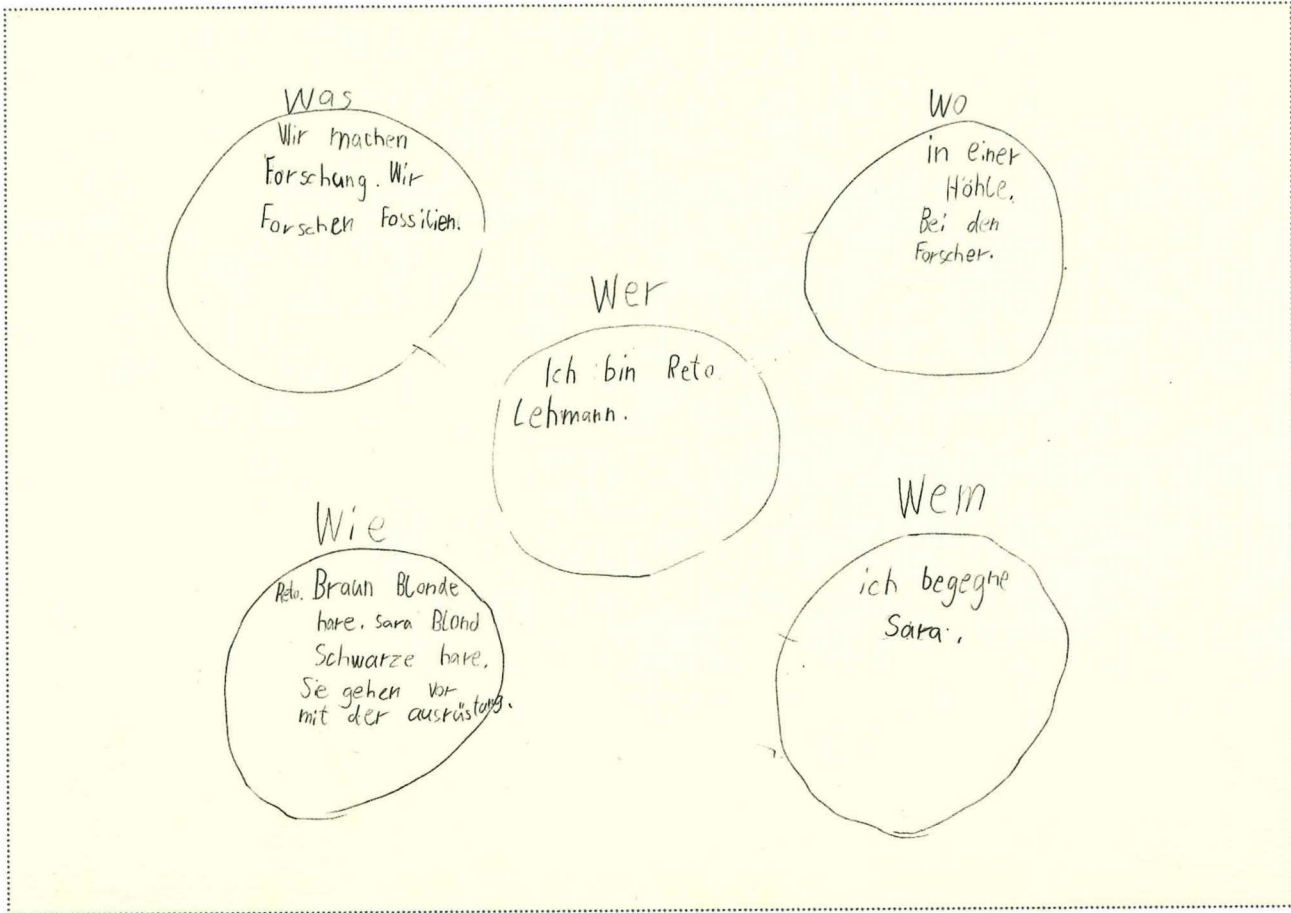 Was
Wir machen
Forschung. Wir
Forschen Fossilien.
Wo
in einer
Höhle.
Bei den
Forscher.
Wer
Ich bin Reto
Lehmann.
Wie
Reto. Braun Blonde
hare. sara Blond
Schwarze hare.
Sie gehen vor
mit der ausrüstung.
Wem
ich begegne
Sara.